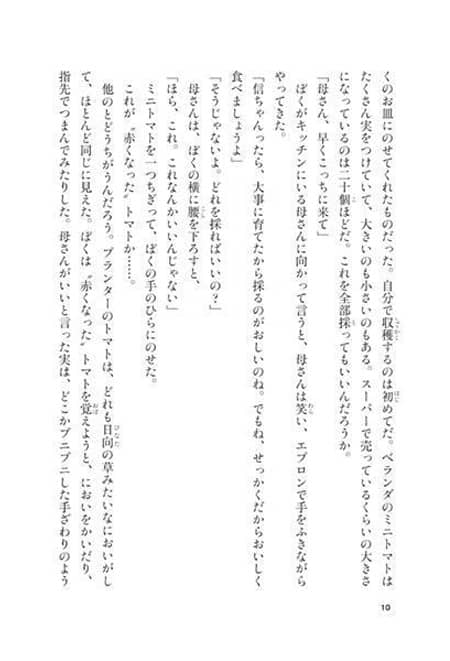 くのお皿にのせてくれたものだった。自分で収穫するのは初めてだ。ベランダのミニトマトは
たくさん実をつけていて、大きいのも小さいのもある。スーパーで売っているくらいの大きさ
になっているのは二十個ほどだ。これを全部採ってもいいんだろうか。
「母さん、早くこっちに来て」
ぼくがキッチンにいる母さんに向かって言うと、母さんは笑い、エプロンで手をふきながら
やってきた。
「信ちゃんったら、大事に育てたから採るのがおしいのね。でもね、せっかくだからおいしく
食べましょうよ」
「そうじゃないよ。どれを採ればいいの?」
母さんは、ぼくの横に腰を下ろすと、
「ほら、これ。これなんかいいんじゃない」
ミニトマトを一つちぎって、ぼくの手のひらにのせた。
これが〝赤くなった〟トマトか……。
他のとどうちがうんだろう。プランターのトマトは、どれも日向の草みたいなにおいがし
て、ほとんど同じに見えた。ぼくは〝赤くなった〟トマトを覚えようと、においをかいだり、
指先でつまんでみたりした。母さんがいいと言った実は、どこかプニプニした手ざわりのよう
10